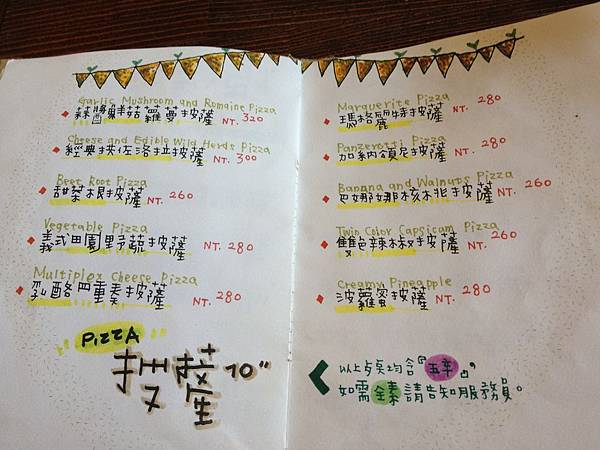 Garlic Mushroom and Romaine Pizza
蒜醬鮮菇蘿蔓披薩 NT. 320
Cheese and Edible Wild Herbs Pizza
經典挾佐洛拉披薩 NT. 300
Beet Root Pizza
甜菜根披薩 NT. 260
Vegetable Pizza
義式田園野蔬披薩 NT. 280
Multiplex Cheese Pizza
乳酪四重奏披薩 NT. 280
PIZZA
披薩 10"
Marguerite Pizza
瑪格麗特披薩 NT. 280
Panzerotti Pizza
加納領尼披薩 NT. 280
Banana and Walnuts Pizza
巴娜娜核桃披薩 NT. 260
Two Color Capsicum Pizza
雙色辣椒披薩 NT. 260
Creamy Pineapple
波蘿蜜披薩 NT. 280
以上皮均含『五辛』,
如需全素請告知服務員。